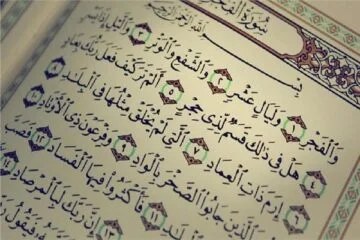 سُورَةُ الْفَجْرِ
بِسْمِ اللَّهِ الرَّحْمَٰنِ الرَّحِيمِ
وَالْفَجْرِ ١ وَلَيَالٍ عَشْرٍ ٢ وَالشَّفْعِ وَالْوَتْرِ ٣ وَاللَّيْلِ إِذَا يَسْرِ
٤ هَلْ فِي ذَٰلِكَ قَسَمٌ لِّذِي حِجْرٍ ٥ أَلَمْ تَرَ كَيْفَ فَعَلَ رَبُّكَ بِعَادٍ
٦ إِرَمَ ذَاتِ الْعِمَادِ ٧ الَّتِي لَمْ يُخْلَقْ مِثْلُهَا فِي الْبِلَٰدِ ٨
الَّذِينَ جَابُوا الصَّخْرَ بِالْوَادِ ٩ وَفِرْعَوْنَ ذِي الْأَوْتَادِ
١١ فَأَكْثَرُوا فِيهَا الْفَسَادَ ١٢ فَصَبَّ
إِنَّ رَبَّكَ لَبِالْمِرْصَادِ ١٤
فَيَقُولُ